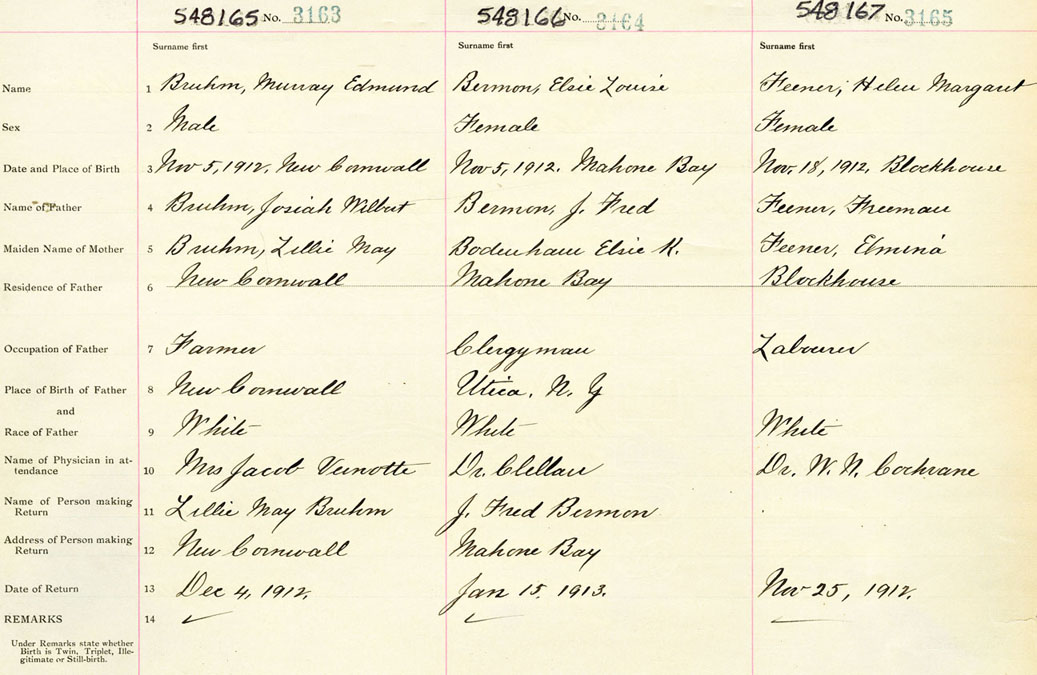 548165 No. 3163 548166 No. 3164 548167 No. 3165
Surname first Surname first Surname first
Name 1 Bruhm, Murray Edmund Bermon, Elsie Louise Feener, Helen Margaret
Sex 2 Male Female Female
Date and Place of Birth 3 Nov 5, 1912, New Cornwall Nov 5, 1912. Mahone Bay Nov. 18, 1912, Blockhouse
Name of Father 4 Bruhm, Josiah Wilbert Bermon, J. Fred Feener, Freeman
Maiden Name of Mother 5 Bruhm, Lillie May Bodenham Elsie K. Feener, Elmina
Residence of Father 6 New Cornwall Mahone Bay Blockhouse
Occupation of Father 7 Farmer Clergyman Labourer
Place of Birth of Father 8 New Cornwall Utica, N. Y
and
Race of Father 9 White White White
Name of Physician in at-
tendance 10 Mrs Jacob Veinotte Dr. Clellan Dr. W. N. Cochrane
Name of Person making
Return 11 Lillie May Bruhm J. Fred Bermon
Address of Person making
Return 12 New Cornwall Mahone Bay
Date of Return 13 Dec 4, 1912, Jan 15, 1913. Nov 25, 1912.
REMARKS 14
Under Remarks state whether
Birth is Twin, Triplet, Ille-
gitimate or Still-birth.